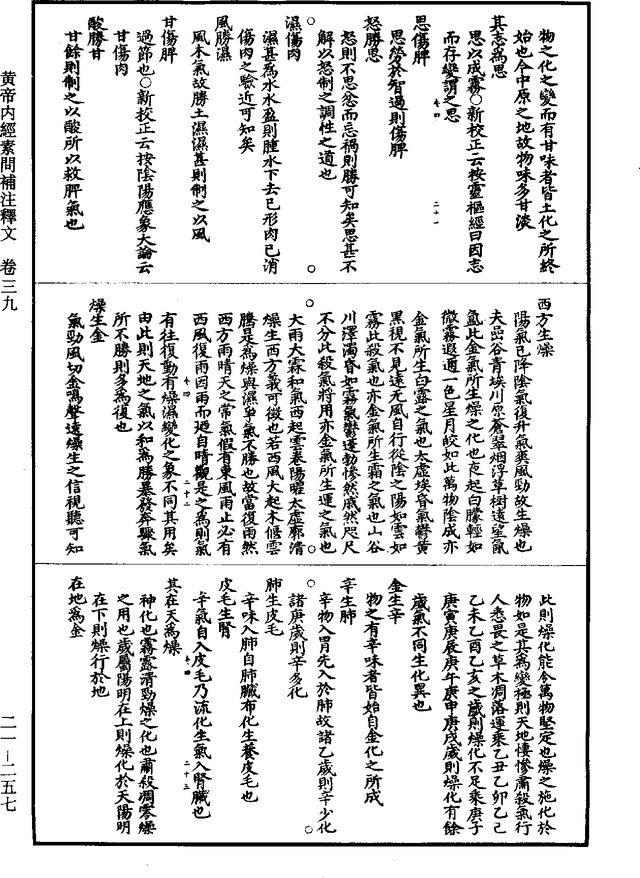 黄帝内經素問補注釋文 卷三九
二一-二五七
物之化之變而有甘味者皆土化之所終
始也今中原之地故物味多甘淡
其志爲思
思以成務○新校正云按靈樞經曰因志
而存變謂之思
思傷脾
思勞於智過則傷脾
怒勝思
怒則不思忿而忘禍則勝可知矣思甚不
解以怒制之調性之道也
濕傷肉
濕甚爲水水盈則腫水下去已形肉已消
傷肉之驗近可知矣
風勝濕
風木氣故勝土濕濕甚則制之以風
甘傷脾
過節也○新校正云按陰陽應象大論云
甘傷肉
酸勝甘
甘餘則制之以酸所以救脾氣也
西方生燥
陽氣已降陰氣復升氣爽風勁故生燥也
夫喦谷青埃川原蒼翠烟浮草樹遠望氤
氲此金氣所生燥之化也夜起白朦輕如
微霧遐邇一色星月皎如此萬物陰成亦
金氣所生白露之氣也太虛埃昏氣鬱黄
黑視不見遠无風自行從陰之陽如雲如
霧此殺氣也亦金氣所生霜之氣也山谷
川澤濁昏如霧氣鬱蓬勃慘然戚然咫尺
不分此殺氣將用亦金氣所生運之氣也
大雨大霖和氣西起雲卷陽曜太虛廓清
燥生西方義可徵也若西風大起木偃雲
騰是爲燥與濕争氣不勝也故當復雨然
西方雨晴天之常氣假有東風雨止必有
西風復雨因雨而廼自晴觀是之爲則氣
有往復動有燥濕變化之象不同其用矣
由此則天地之氣以和爲勝暴發奔驟氣
所不勝則多爲復也
燥生金
氣勁風切金鳴聲遠燥生之信視聽可知
此則燥化能令萬物堅定也燥之施化於
物如是其爲變極則天地悽慘肅殺氣行
人悉畏之草木凋落運乘乙丑乙卯乙巳
乙未乙酉乙亥之歲則燥化不足乘庚子
庚寅庚辰庚午庚申庚戌歲則燥化有餘
歲氣不同生化異也
金生辛
物之有辛味者皆始自金化之所成
辛生肺
辛物入胃先入於肺故諸乙歲則辛少化
諸庚歲則辛多化
肺生皮毛
辛味入肺自肺臟布化生養皮毛也
皮毛生腎
辛氣自入皮毛乃流化生氣入腎臟也
其在天爲燥
神化也霧露清勁燥之化也肅殺凋零燥
之用也歲屬陽明在上則燥化於天陽明
在下則燥行於地
在地爲金